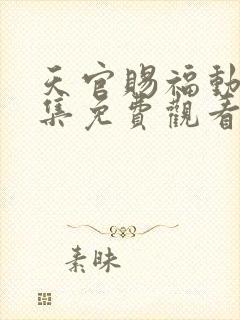 天官賜福動
集免費觀看
素昧